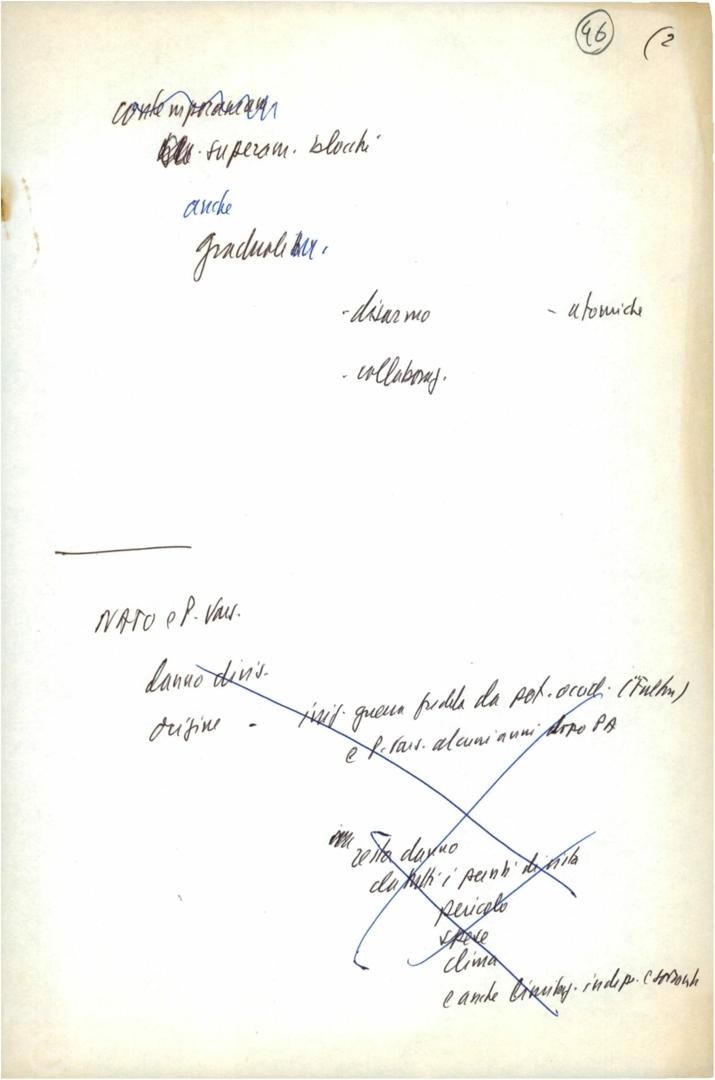 46 (2
contemporaneam
superam. blocchi
anche
gradualm.
- disarmo - atomiche
- collaboraz.
NATO e P. Vars.
danno divis.
origine - iniz. guerra fredda da pot. occid. (Fulton)
e P. Vars. alcuni anni dopo PA
ma resta danno
da tutti i punti di vista
pericolo
spese
clima
e anche limitaz. indip. e sovranità